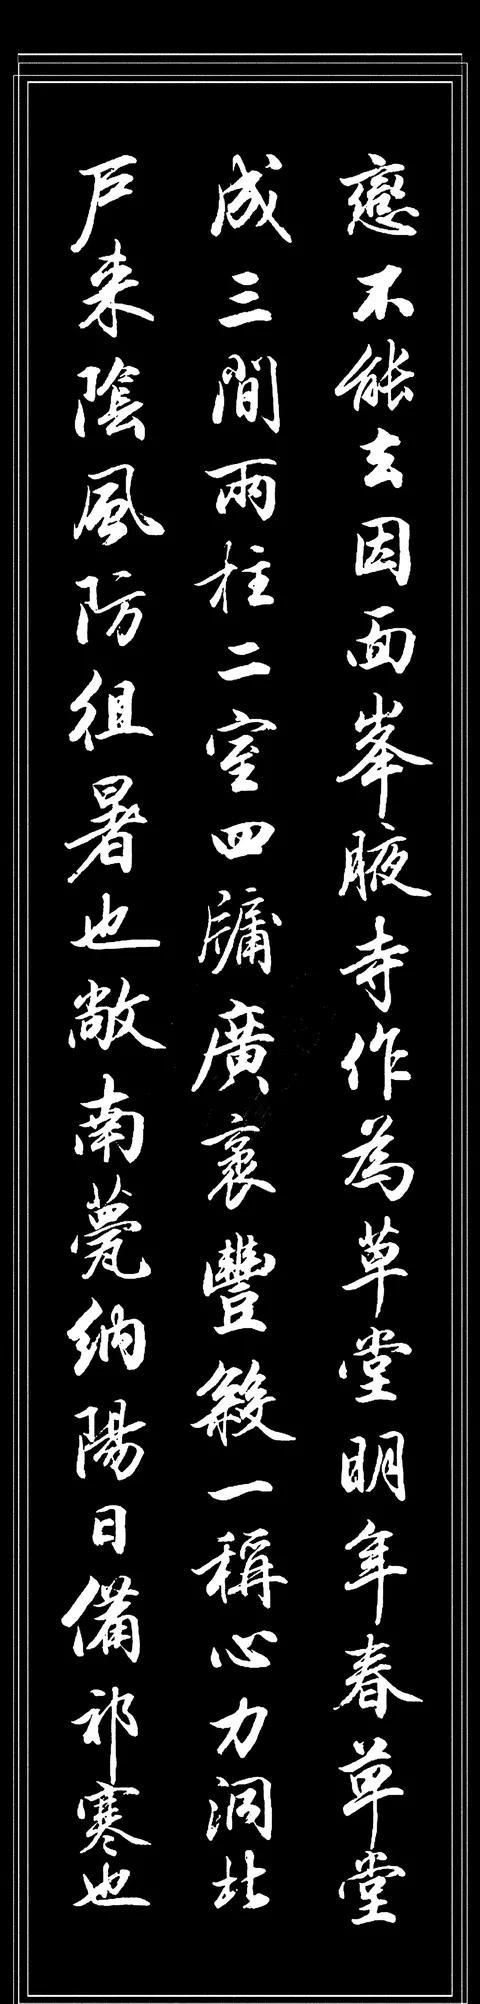 戀不能去因面峯腋寺作為草堂明年春草堂
成三間兩柱二室四牖廣袤豐殺一稱心力洞北
戶来陰風防徂暑也敞南甍納陽日備祁寒也